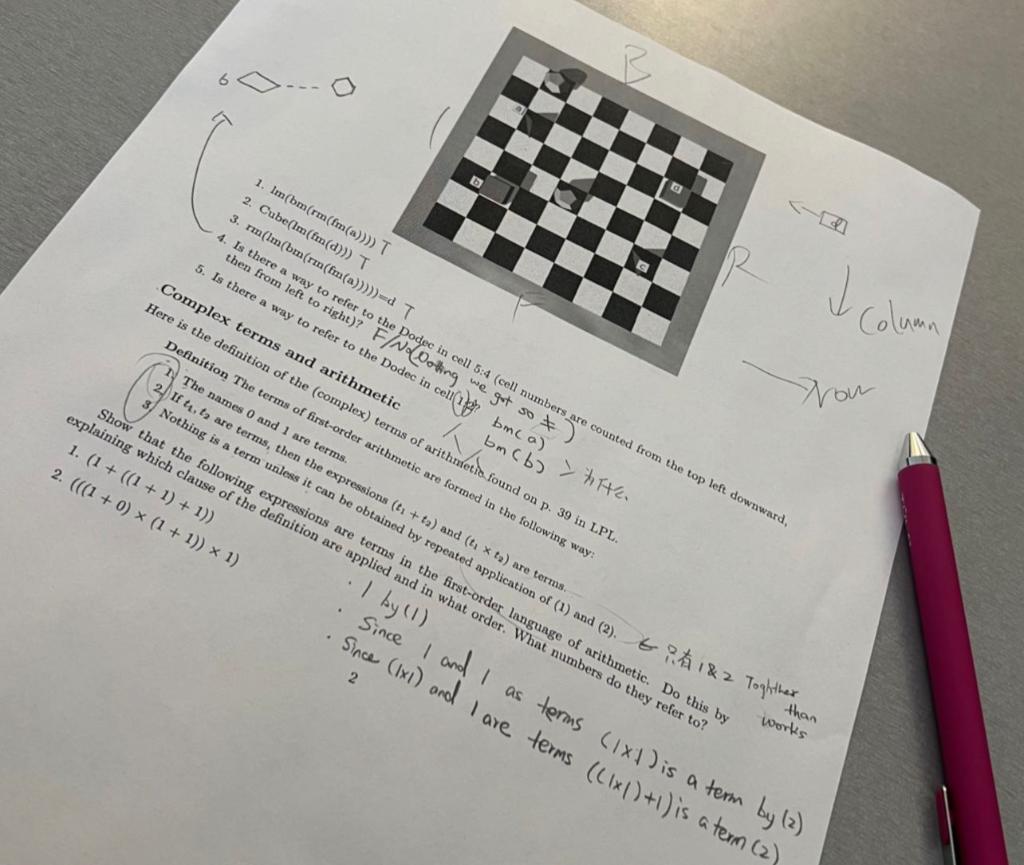 B
6
a
b
d
c
R
F
Column
row
1. lm(bm(rm(fm(a)))) T
2. Cube(lm(fm(d))) T
3. rm(lm(bm(rm(fm(a)))))=d T
4. Is there a way to refer to the Dodec in cell 5:4 (cell numbers are counted from the top left downward,
then from left to right)? F/No (Doting we got so ≠)
5. Is there a way to refer to the Dodec in cell
bm(a)
bm(b) >
Complex terms and arithmetic
Here is the definition of the (complex) terms of arithmetic found on p. 39 in LPL.
Definition The terms of first-order arithmetic are formed in the following way:
1. The names 0 and 1 are terms.
2. If t₁, t₂ are terms, then the expressions (t₁ + t₂) and (t₁ × t₂) are terms.
3. Nothing is a term unless it can be obtained by repeated application of (1) and (2).
← 只有 1 & 2 Toghther than works
Show that the following expressions are terms in the first-order language of arithmetic. Do this by
explaining which clause of the definition are applied and in what order. What numbers do they refer to?
1. (1 + ((1 + 1) + 1))
2. (((1 + 0) × (1 + 1)) × 1)
· 1 by (1)
· Since 1 and 1 as terms (1×1) is a term by (2)
· Since (1×1) and 1 are terms ((1×1)+1) is a term (2)
2